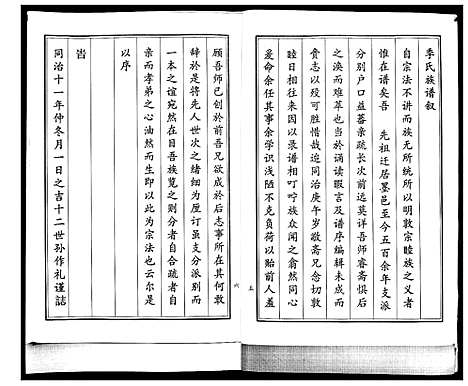 季氏族譜叙
自宗法不講而族无所統所以明敦宗睦族之义者
惟在谱矣吾　先祖迁居墨邑至今五百余年支派
分别户口益蕃亲疏长次前后莫详吾师睿斋惧后
之涣而难萃也当於诵读暇言及谱序编辑未成而
赍志以殁可胜惜哉迨同治庚午岁敬斋兄恺切敦
睦日相往来以录谱相叮咛族众闻之翕然同心
爰命余任其事余学识浅陋不克负荷以贻前人羞
顾吾师已创於前吾兄欲成於后志事所在其何敦
辞於是将先人世次之绪细为厘订虽支分派别而
一本之谊宛然在目吾族览之则分者自合疏者自
亲而孝弟之心油然而生即以此为宗法也云尔是
以序
旹
同治十一年仲冬月一日之吉十二世孙作礼谨誌
六
五